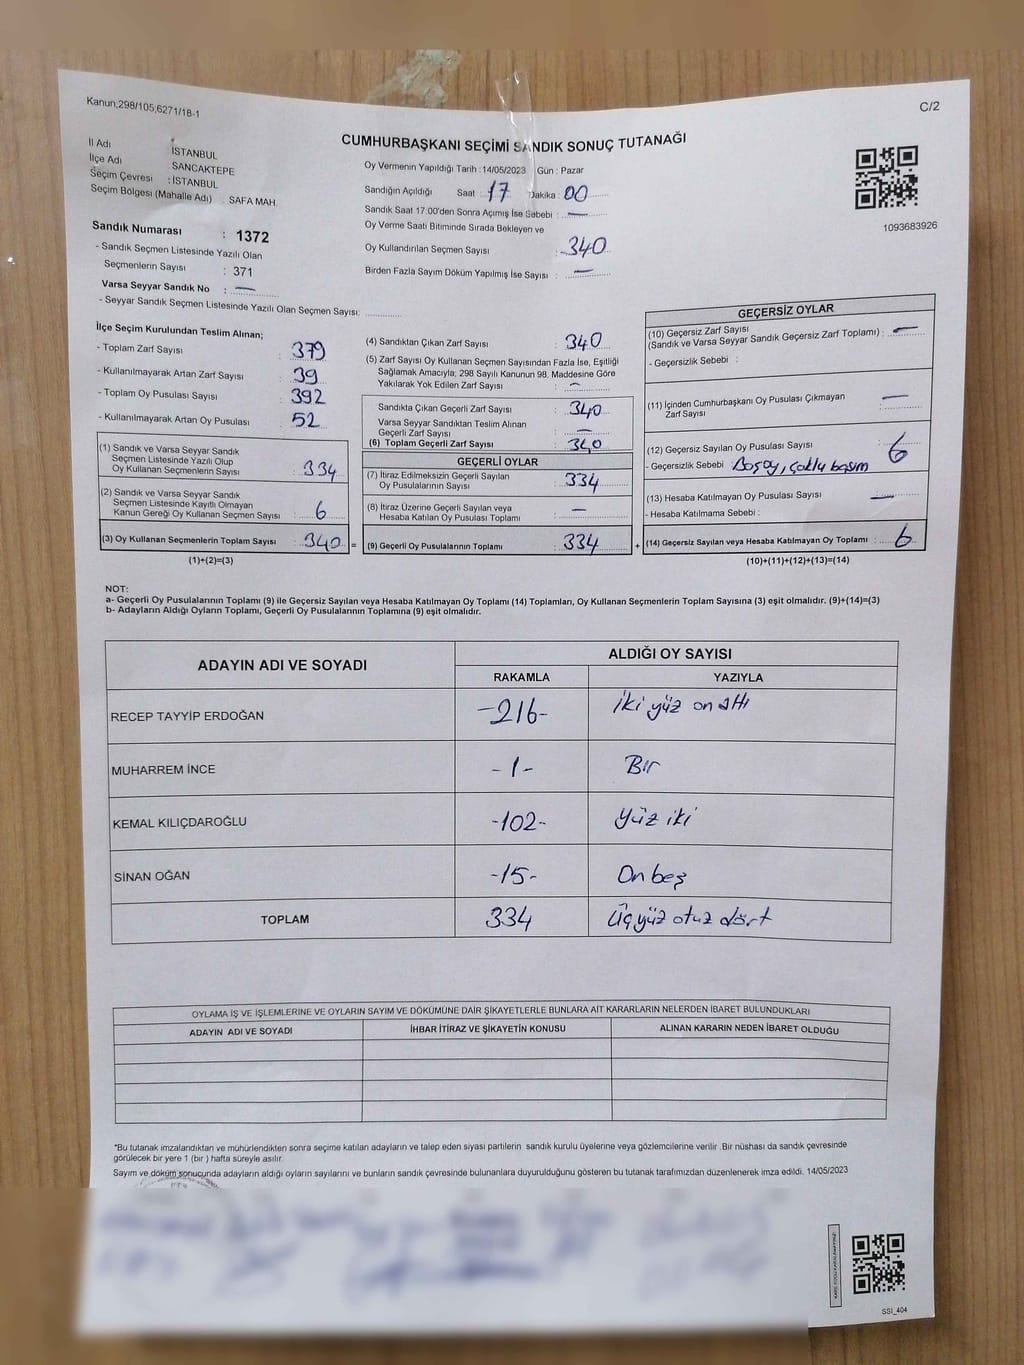 Kanun,298/105,6271/18-1
C/2
CUMHURBAŞKANI SEÇİMİ SANDIK SONUÇ TUTANAĞI
İl Adı İSTANBUL
İlçe Adı SANCAKTEPE
Seçim Çevresi : İSTANBUL
Seçim Bölgesi (Mahalle Adı) . SAFA MAH.
Sandık Numarası : 1372
- Sandık Seçmen Listesinde Yazılı Olan
Seçmenlerin Sayısı : 371
Varsa Seyyar Sandık No : —
- Seyyar Sandık Seçmen Listesinde Yazılı Olan Seçmen Sayısı:
Oy Vermenin Yapıldığı Tarih : 14/05/2023 Gün : Pazar
Sandığın Açıldığı Saat : 17 Dakika : 00
Sandık Saat 17:00'den Sonra Açımış İse Sebebi : —
Oy Verme Saati Bitiminde Sırada Bekleyen ve
Oy Kullandırılan Seçmen Sayısı : 340
Birden Fazla Sayım Döküm Yapılmış İse Sayısı : —
1093683926
İlçe Seçim Kurulundan Teslim Alınan;
- Toplam Zarf Sayısı : 379
- Kullanılmayarak Artan Zarf Sayısı : 39
- Toplam Oy Pusulası Sayısı : 392
- Kullanılmayarak Artan Oy Pusulası : 52
(1) Sandık ve Varsa Seyyar Sandık
Seçmen Listesinde Yazılı Olup
Oy Kullanan Seçmenlerin Sayısı : 334
(2) Sandık ve Varsa Seyyar Sandık
Seçmen Listesinde Kayıtlı Olmayan
Kanun Gereği Oy Kullanan Seçmen Sayısı : 6
(3) Oy Kullanan Seçmenlerin Toplam Sayısı : 340 =
(1)+(2)=(3)
(4) Sandıktan Çıkan Zarf Sayısı : 340
(5) Zarf Sayısı Oy Kullanan Seçmen Sayısından Fazla İse, Eşitliği
Sağlamak Amacıyla; 298 Sayılı Kanunun 98. Maddesine Göre
Yakılarak Yok Edilen Zarf Sayısı : —
Sandıkta Çıkan Geçerli Zarf Sayısı : 340
Varsa Seyyar Sandıktan Teslim Alınan
Geçerli Zarf Sayısı : —
(6) Toplam Geçerli Zarf Sayısı : 340
GEÇERLİ OYLAR
(7) İtiraz Edilmeksizin Geçerli Sayılan
Oy Pusulalarının Sayısı : 334
(8) İtiraz Üzerine Geçerli Sayılan veya
Hesaba Katılan Oy Pusulası Toplamı : —
(9) Geçerli Oy Pusulalarının Toplamı : 334 +
GEÇERSİZ OYLAR
(10) Geçersiz Zarf Sayısı
(Sandık ve Varsa Seyyar Sandık Geçersiz Zarf Toplamı) : —
- Geçersizlik Sebebi :
(11) İçinden Cumhurbaşkanı Oy Pusulası Çıkmayan
Zarf Sayısı : —
(12) Geçersiz Sayılan Oy Pusulası Sayısı : 6
- Geçersizlik Sebebi Boşoy, çoklu basım
(13) Hesaba Katılmayan Oy Pusulası Sayısı : —
- Hesaba Katılmama Sebebi :
(14) Geçersiz Sayılan veya Hesaba Katılmayan Oy Toplamı : 6
(10)+(11)+(12)+(13)=(14)
NOT:
a- Geçerli Oy Pusulalarının Toplamı (9) ile Geçersiz Sayılan veya Hesaba Katılmayan Oy Toplamı (14) Toplamları, Oy Kullanan Seçmenlerin Toplam Sayısına (3) eşit olmalıdır. (9)+(14)=(3)
b- Adayların Aldığı Oyların Toplamı, Geçerli Oy Pusulalarının Toplamına (9) eşit olmalıdır.
ADAYIN ADI VE SOYADI ALDIĞI OY SAYISI
RAKAMLA YAZIYLA
RECEP TAYYİP ERDOĞAN -216- iki yüz on altı
MUHARREM İNCE -1- Bir
KEMAL KILIÇDAROĞLU -102- Yüz iki
SİNAN OĞAN -15- On beş
TOPLAM 334 Üç yüz otuz dört
OYLAMA İŞ VE İŞLEMLERİNE VE OYLARIN SAYIM VE DÖKÜMÜNE DAİR ŞİKAYETLERLE BUNLARA AİT KARARLARIN NELERDEN İBARET BULUNDUKLARI
ADAYIN ADI VE SOYADI İHBAR İTİRAZ VE ŞİKAYETİN KONUSU ALINAN KARARIN NEDEN İBARET OLDUĞU
*Bu tutanak imzalandıktan ve mühürlendikten sonra seçime katılan adayların ve talep eden siyasi partilerin sandık kurulu üyelerine veya gözlemcilerine verilir .Bir nüshası da sandık çevresinde
görülecek bir yere 1 (bir ) hafta süreyle asılır.
Sayım ve döküm sonucunda adayların aldığı oyların sayılarını ve bunların sandık çevresinde bulunanlara duyurulduğunu gösteren bu tutanak tarafımızdan düzenlenerek imza edildi. 14/05/2023
SSI_404